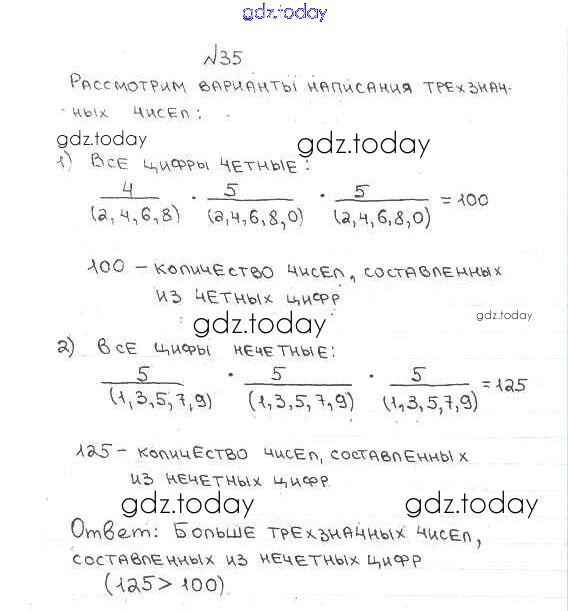 gdz.today
№35
Рассмотрим варианты написания трехзнач-
-ных чисел:
gdz.today
gdz.today
1) Все цифры четные:
4/(2,4,6,8) · 5/(2,4,6,8,0) · 5/(2,4,6,8,0) = 100
100 – количество чисел, составленных
из четных цифр
gdz.today
gdz.today
2) Все цифры нечетные:
5/(1,3,5,7,9) · 5/(1,3,5,7,9) · 5/(1,3,5,7,9) = 125
125 – количество чисел, составленных
из нечетных цифр
gdz.today
gdz.today
Ответ: Больше трехзначных чисел,
составленных из нечетных цифр
(125 > 100)